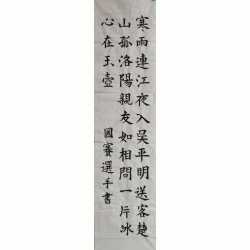 寒雨連江夜入吳平明送客楚
山孤洛陽親友如相問一片冰
心在玉壺
國賽選手書